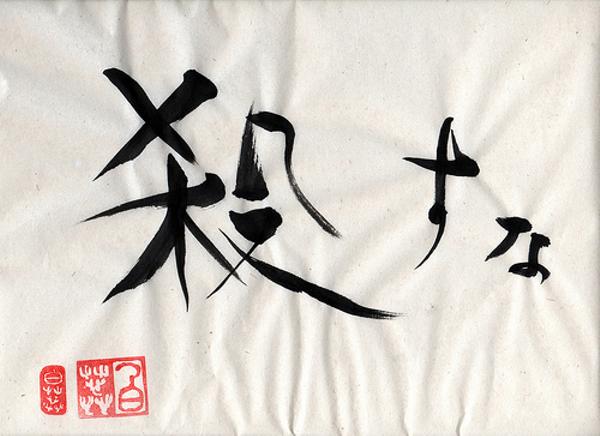 殺すな